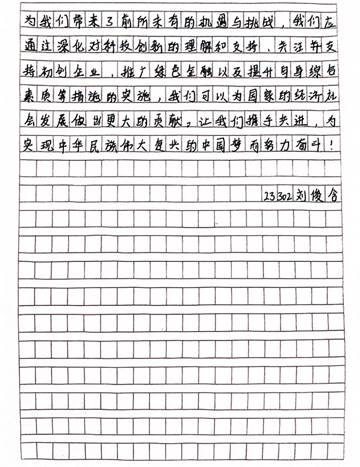 为我们带来了前所未有的机遇与挑战，我们应
通过深化对科技创新的理解和支持、关注并支
持初创企业、推广绿色金融以及提升自身综合
素质等措施的实施，我们可以为国家的经济社
会发展做出更大的贡献。让我们携手共进，为
实现中华民族伟大复兴的中国梦而努力奋斗！
23302刘俊含